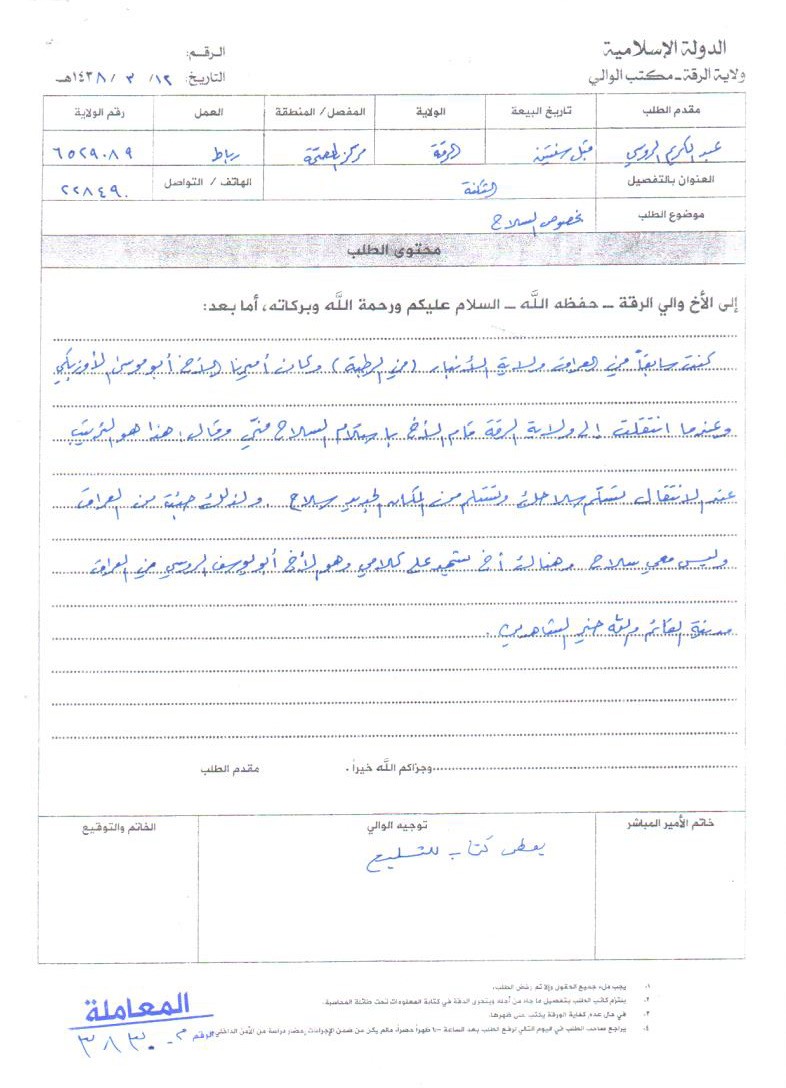 الدولة الإسلامية
ولاية الرقة - مكتب الوالي
الرقم:
التاريخ: ١٢/ ٣ / ١٤٣٨هـ
مقدم الطلب تاريخ البيعة الولاية المفصل / المنطقة العمل رقم الولاية
عبد الكريم الروسي قبل سنتين الرقة مركز رباط ٦٥٢٩٠٨٩
العنوان بالتفصيل الثكنة الهاتف / التواصل ٢٢٨٤٩٠
موضوع الطلب بخصوص السلاح
محتوى الطلب
إلى الأخ والي الرقة - حفظه الله - السلام عليكم ورحمة الله وبركاته، أما بعد:
كنت سابقاً في العراق ولاية الأنبار (في الرطبة) وكان أميرنا الأخ أبو موسى الأوزبكي
وعندما انتقلت إلى ولاية الرقة قام الأخ باستلام السلاح مني وقال: هذا هو الترتيب
عند الانتقال تسلّم سلاحك وتستلم من المكان الجديد سلاح. ولذلك جئت من العراق
وليس معي سلاح وهناك أخ يشهد على كلامي وهو الأخ أبو يوسف الروسي في العراق
مدينة القائم والله خير الشاهدين.
وجزاكم الله خيراً. مقدم الطلب
خاتم الأمير المباشر توجيه الوالي الخاتم والتوقيع
يعطى كتاب للتسليح
١. يجب ملء جميع الحقول وإلا تم رفض الطلب.
٢. يلتزم كاتب الطلب بتفصيل ما جاء من أجله ويتحرى الدقة في كتابة المعلومات تحت طائلة المحاسبة.
٣. في حال عدم كفاية الورقة يكتب على ظهرها.
٤. يراجع صاحب الطلب في اليوم التالي لرفع الطلب بعد الساعة ١٠ ظهراً حصراً، مالم يكن من ضمن الإجراءات إحضار دراسة من الأمن الداخلي.
المعاملة
الرقم ٣٨٣٠